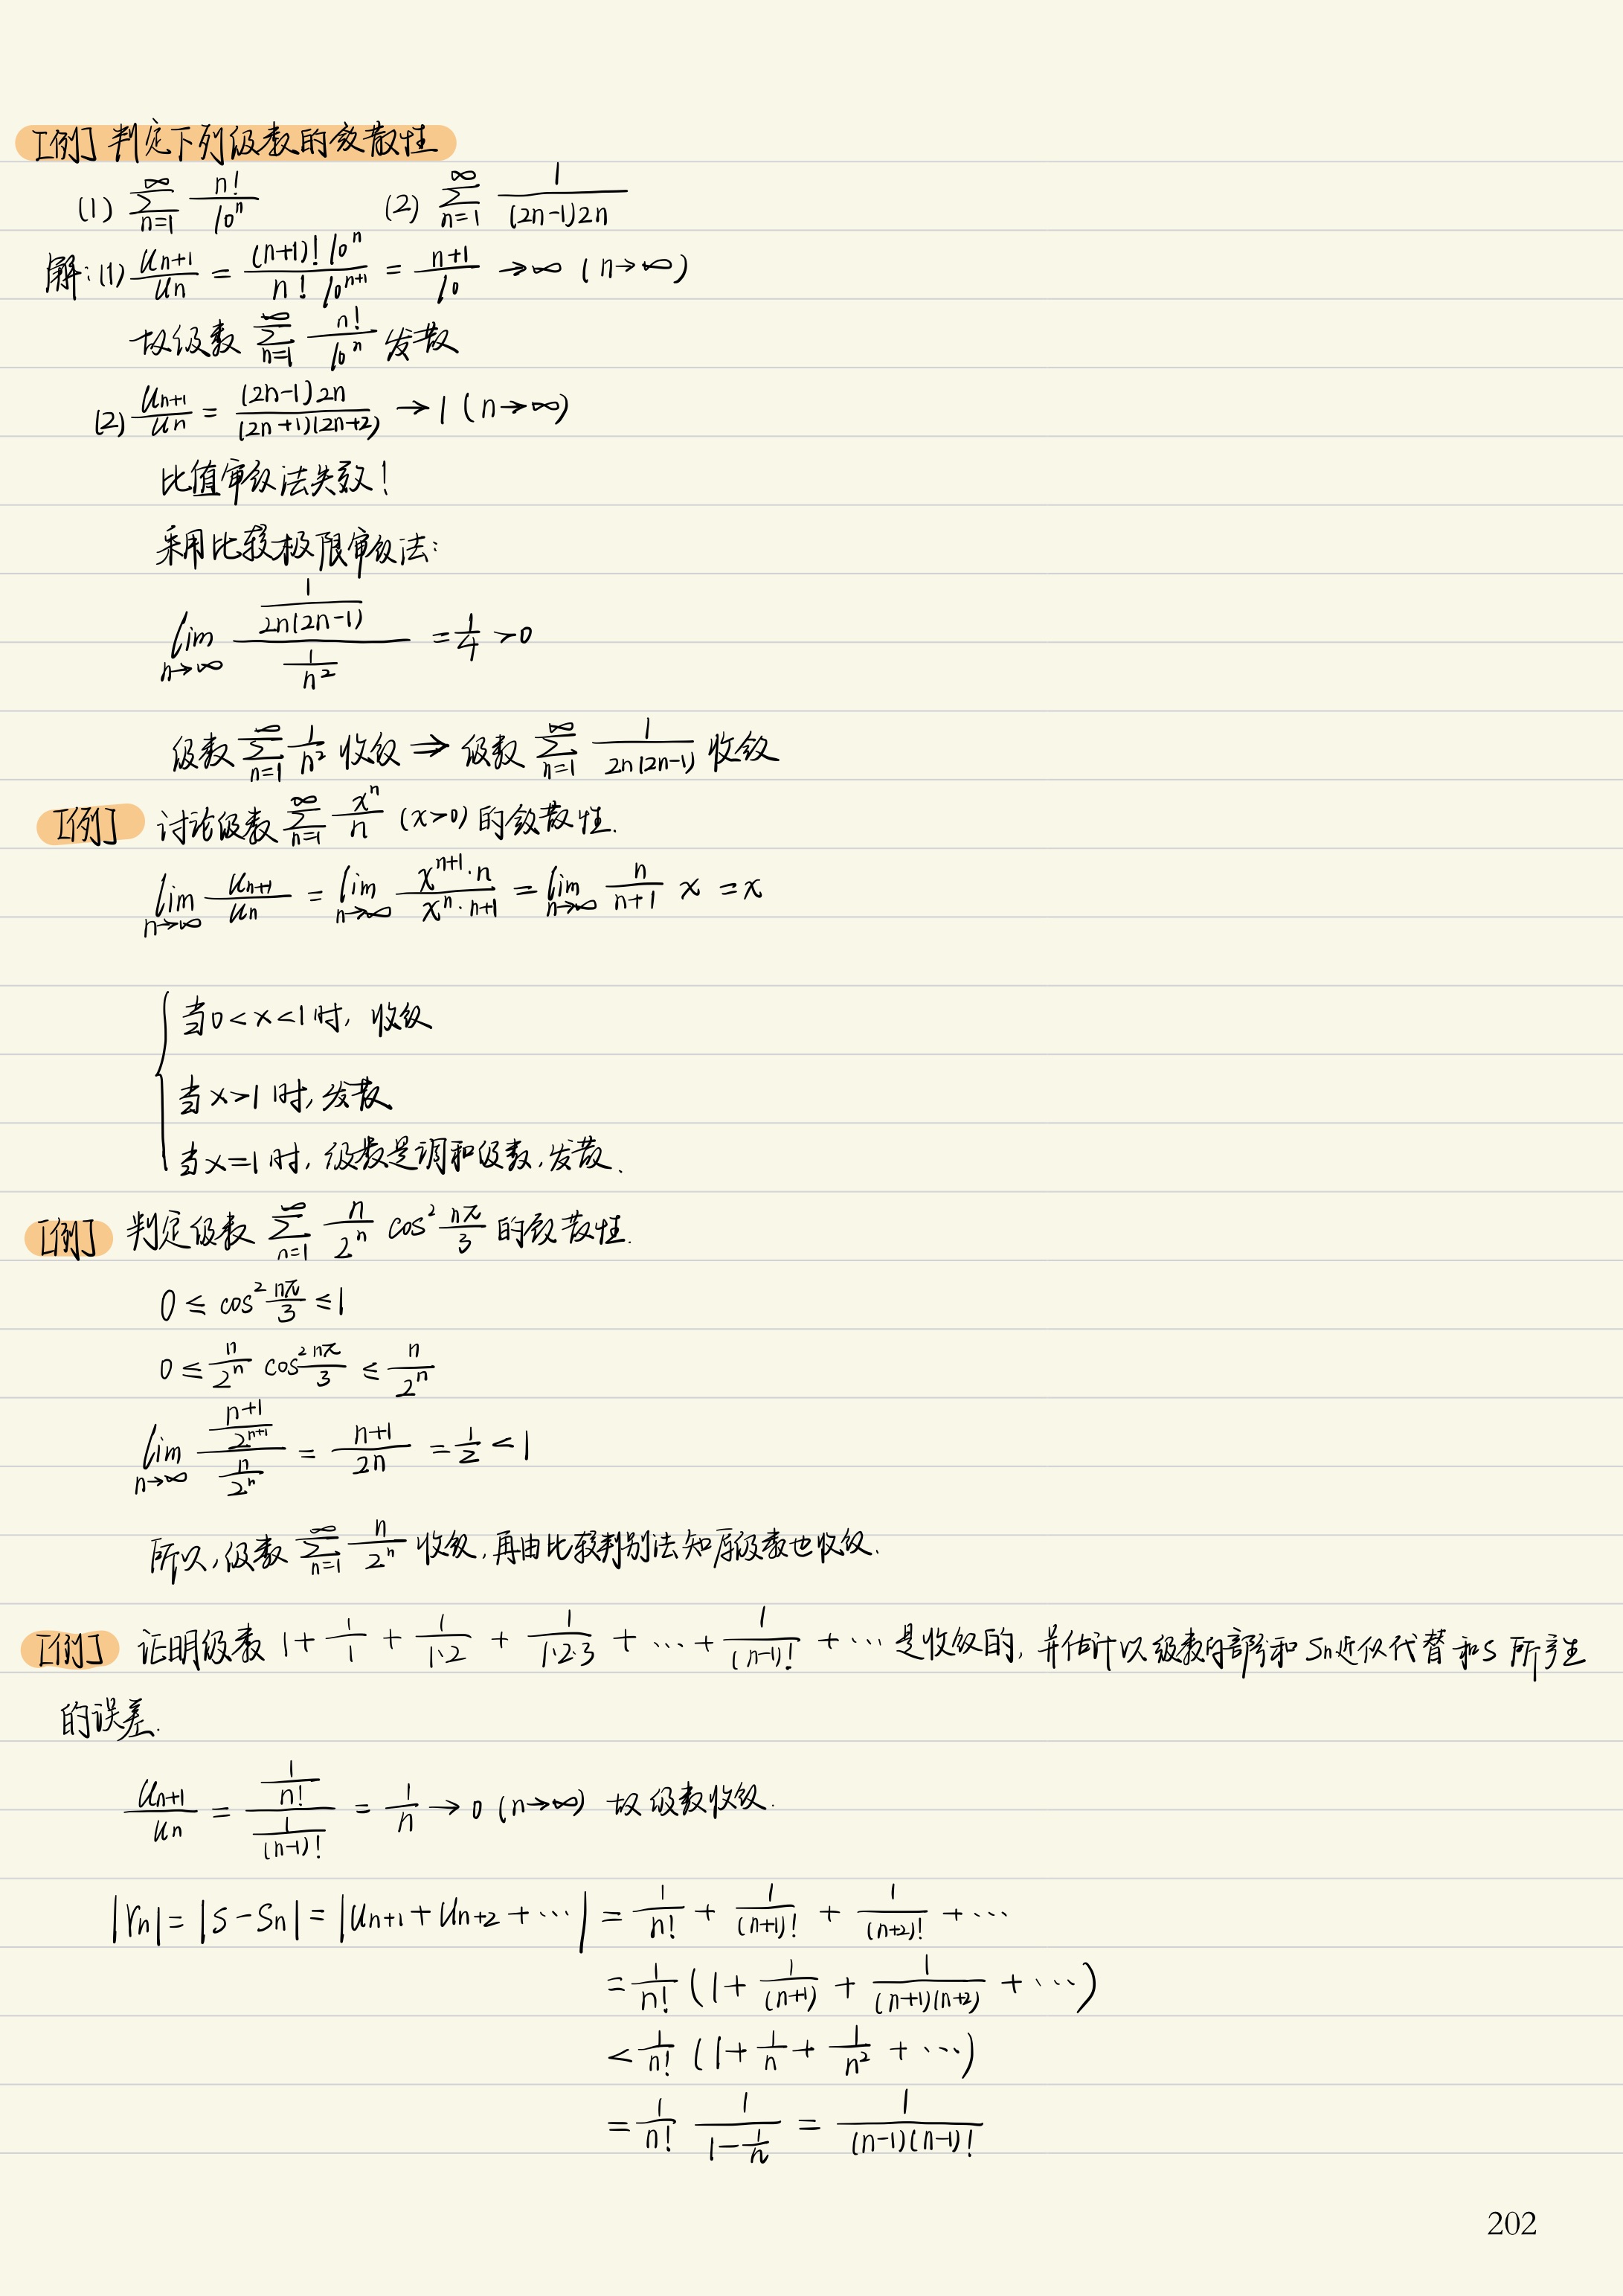 [例] 判定下列级数的敛散性
(1) \sum_{n=1}^{\infty} \frac{n!}{10^n} (2) \sum_{n=1}^{\infty} \frac{1}{(2n-1)2n}
解: (1) \frac{u_{n+1}}{u_n} = \frac{(n+1)! 10^n}{n! 10^{n+1}} = \frac{n+1}{10} → ∞ (n→∞)
故级数 \sum_{n=1}^{\infty} \frac{n!}{10^n} 发散
(2) \frac{u_{n+1}}{u_n} = \frac{(2n-1)2n}{(2n+1)(2n+2)} → 1 (n→∞)
比值审敛法失效!
采用比较极限审敛法:
\lim_{n→∞} \frac{\frac{1}{2n(2n-1)}}{\frac{1}{n^2}} = \frac{1}{4} > 0
级数 \sum_{n=1}^{\infty} \frac{1}{n^2} 收敛 ⇒ 级数 \sum_{n=1}^{\infty} \frac{1}{2n(2n-1)} 收敛
[例] 讨论级数 \sum_{n=1}^{\infty} \frac{x^n}{n} (x>0) 的敛散性.
\lim_{n→∞} \frac{u_{n+1}}{u_n} = \lim_{n→∞} \frac{x^{n+1}·n}{x^n·n+1} = \lim_{n→∞} \frac{n}{n+1} x = x
当 0<x<1 时, 收敛
当 x>1 时, 发散
当 x=1 时, 级数是调和级数, 发散.
[例] 判定级数 \sum_{n=1}^{\infty} \frac{n}{2^n} cos^2 \frac{nπ}{3} 的敛散性.
0 ≤ cos^2 \frac{nπ}{3} ≤ 1
0 ≤ \frac{n}{2^n} cos^2 \frac{nπ}{3} ≤ \frac{n}{2^n}
\lim_{n→∞} \frac{\frac{n+1}{2^{n+1}}}{\frac{n}{2^n}} = \frac{n+1}{2n} = \frac{1}{2} < 1
所以, 级数 \sum_{n=1}^{\infty} \frac{n}{2^n} 收敛, 再由比较判别法知原级数也收敛.
[例] 证明级数 1 + \frac{1}{1} + \frac{1}{1·2} + \frac{1}{1·2·3} + … + \frac{1}{(n-1)!} + … 是收敛的, 并估计以级数的部分和 Sn近似代替和S 所产生
的误差.
\frac{u_{n+1}}{u_n} = \frac{\frac{1}{n!}}{\frac{1}{(n-1)!}} = \frac{1}{n} → 0 (n→∞) 故级数收敛.
|r_n| = |s-s_n| = |u_{n+1}+u_{n+2}+…| = \frac{1}{n!} + \frac{1}{(n+1)!} + \frac{1}{(n+2)!} + …
= \frac{1}{n!} (1 + \frac{1}{(n+1)} + \frac{1}{(n+1)(n+2)} + …)
< \frac{1}{n!} (1 + \frac{1}{n} + \frac{1}{n^2} + …)
= \frac{1}{n!} \frac{1}{1-\frac{1}{n}} = \frac{1}{(n-1)(n-1)!}
202